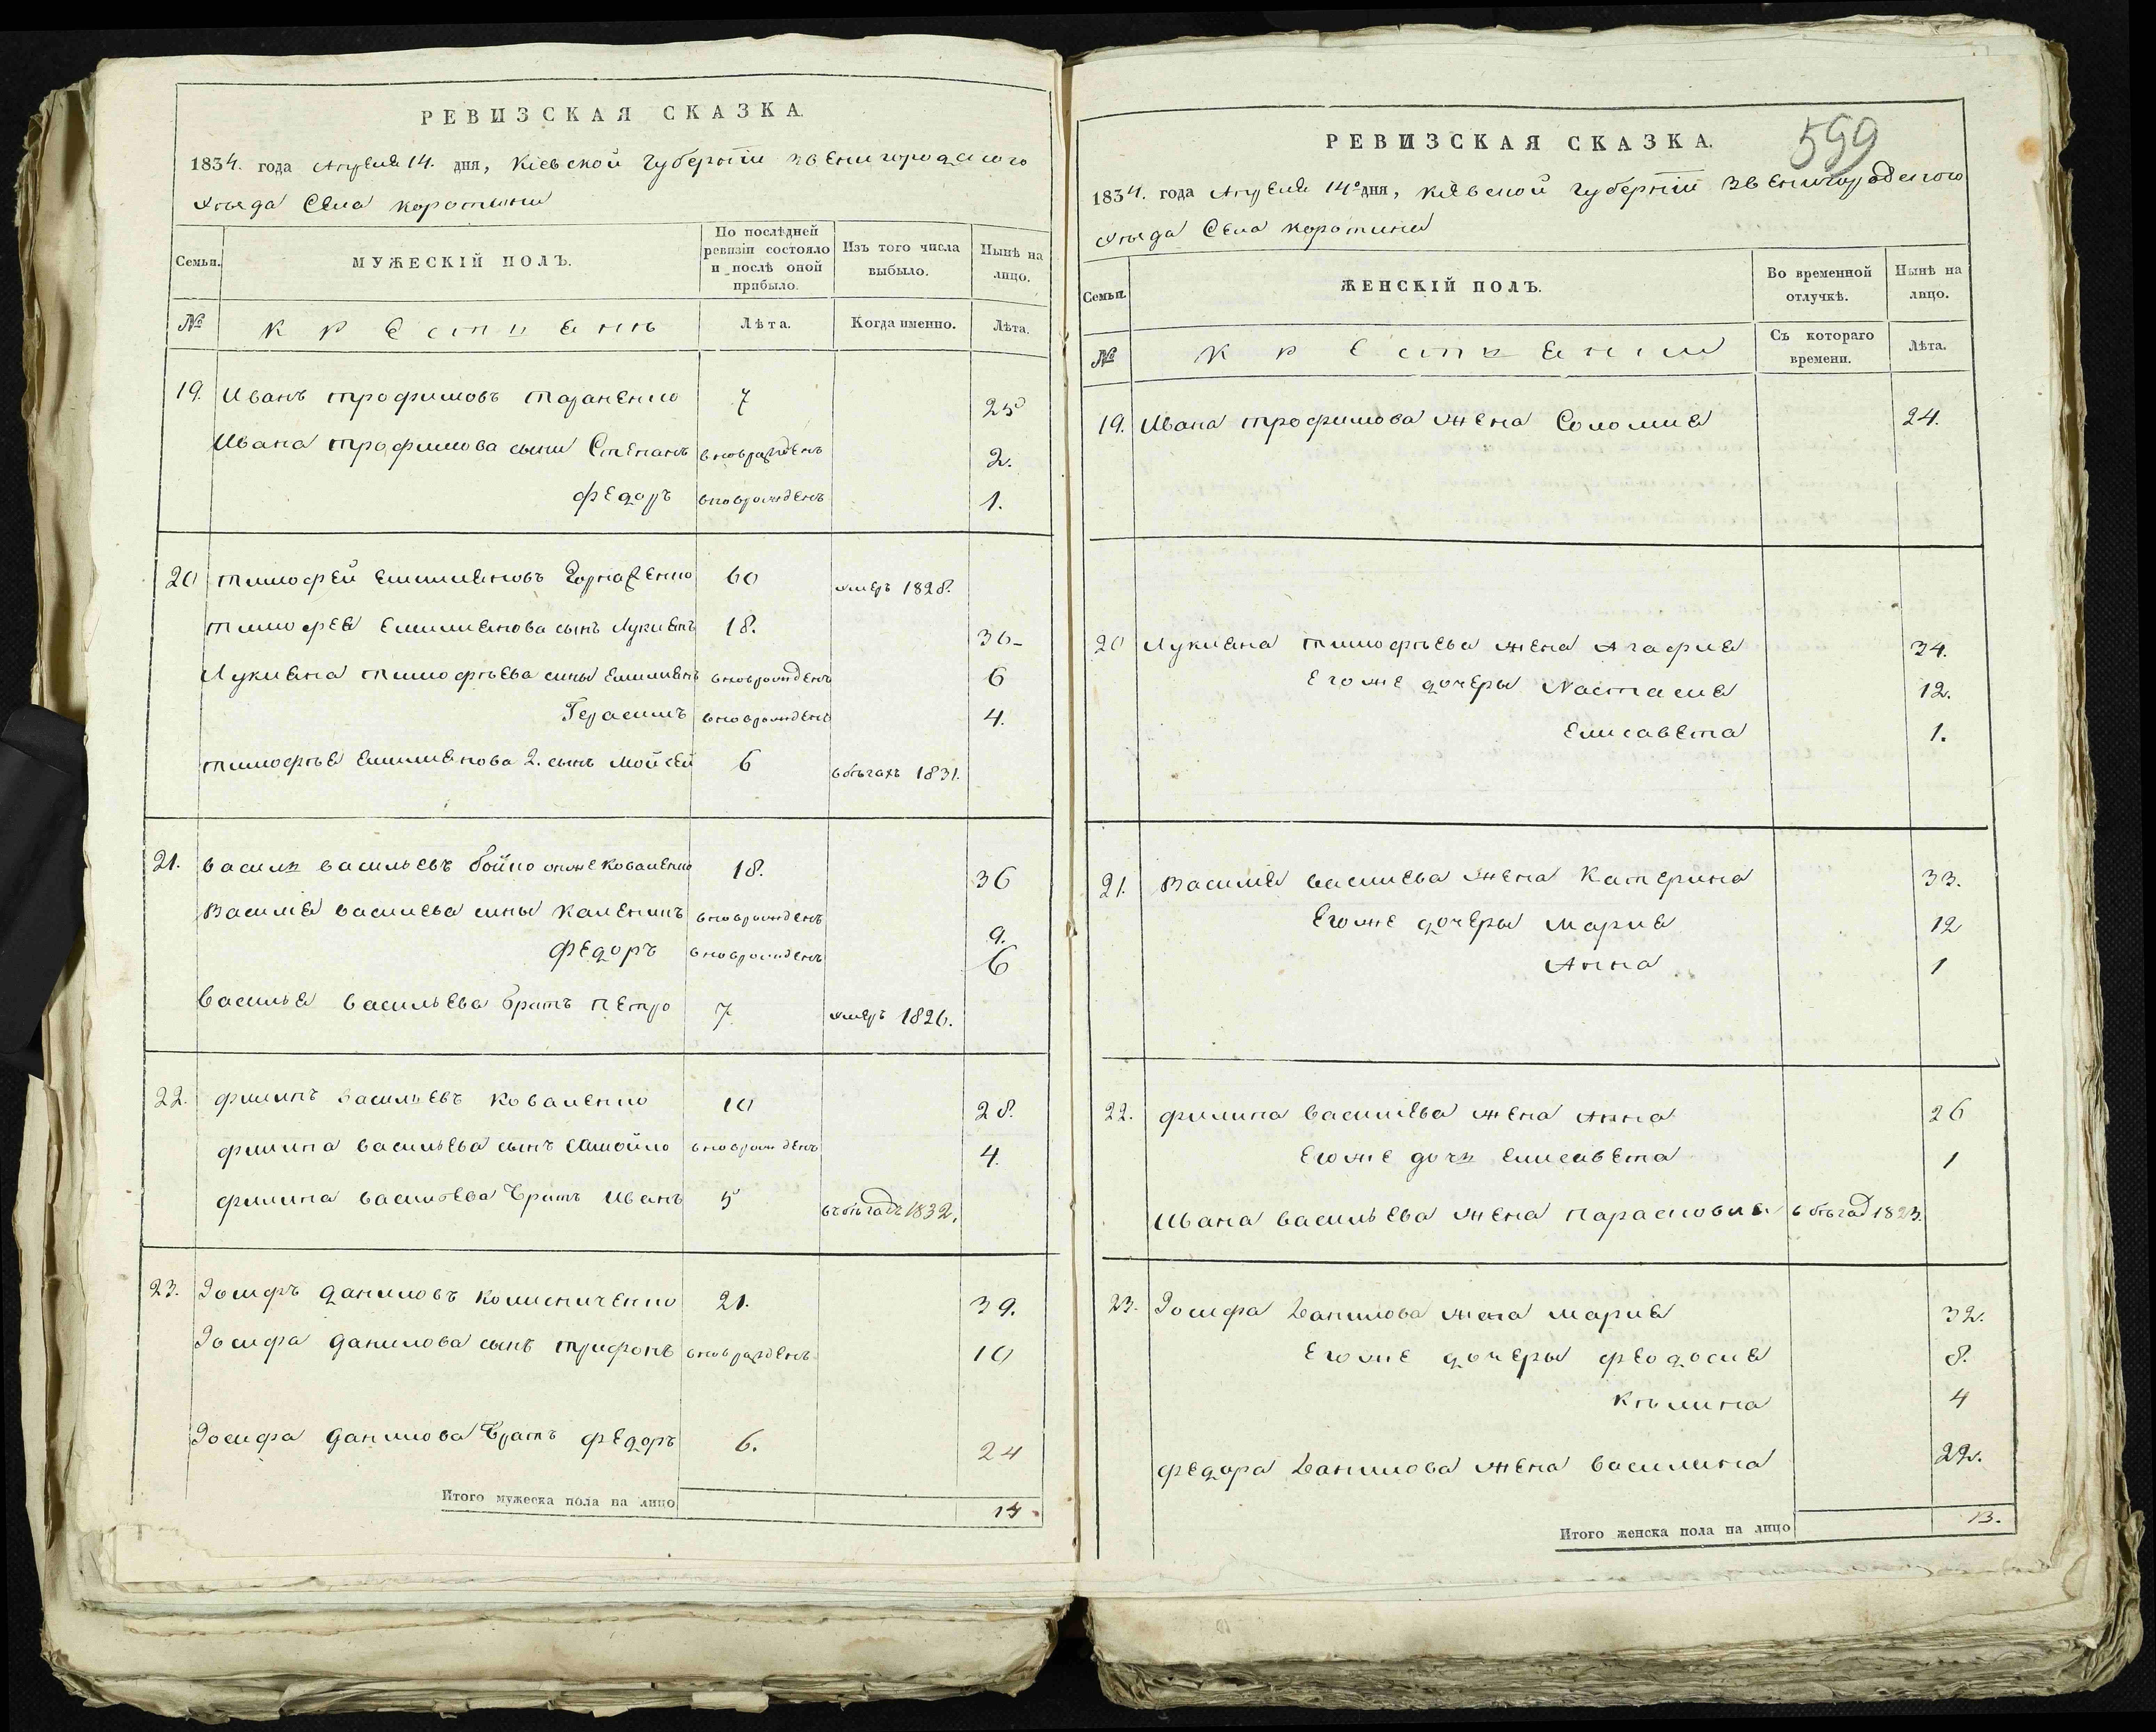 РЕВИЗСКАЯ СКАЗКА.
1834. года Апреля 14. дня, Кіевской губерніи Звенигородского
уезда Села Коротина
Семьи. МУЖЕСКІЙ ПОЛЪ. По послѣдней ревизіи состояло и послѣ оной прибыло. Изъ того числа выбыло. Нынѣ на лицо.
№ Крестьянъ Лѣта. Когда именно. Лѣта.
19. Иванъ трофимовъ тараненко 7 25
Ивана трофимова сыны Степанъ вновьрожденъ 2.
федоръ вновьрожденъ 1.
20 тимофей емилиановъ 60 умеръ 1828.
тимофея емилианова сынъ Лукианъ 18. 36
Лукиана тимофѣева сыны емилианъ вновьрожденъ 6
Герасимъ вновьрожденъ 4.
тимофѣя емилианова 2. сынъ мойсей 6 вбѣгахъ 1831.
21. василь васильевъ бойко онже коваленко 18. 36
василия васильева сыны каленикъ вновьрожденъ 9.
федоръ вновьрожденъ 6
василья васильева братъ петро 7 умеръ 1826.
22. филипъ васильевъ коваленко 10 28.
филипа васильева сынъ самойло вновьрожденъ 4.
филипа васильева братъ иванъ 5 въбѣгахъ 1832.
23. Іосифъ даниловъ колисниченко 21. 39.
Іосифа данилова сынъ трифонъ вновьрожденъ 10
Іосифа данилова братъ федоръ 6. 24
Итого мужеска пола на лицо 14
599
РЕВИЗСКАЯ СКАЗКА.
1834. года Апреля 14º дня, кіевской губерніи Звенигородского
уезда Села коротина
Семьи. ЖЕНСКІЙ ПОЛЪ. Во временной отлучкѣ. Нынѣ на лицо.
№ Крестьянки Съ котораго времени. Лѣта.
19. Ивана трофимова жена Соломия 24.
20 Лукиана тимофѣева жена Агафия 34.
егоже дочеры Настасия 12.
елисавета 1.
21. Василия василиева жена Катерина 33.
егоже дочеры мария 12
Анна 1
22. филипа василиева жена Анна 26
егоже дочь елисавета 1
Ивана васильева жена парасковия вбѣгах 1823.
23. Іосифа Данилова жена мария 32.
егоже дочеры феодосия 8.
Кѣлина 4
федора Данилова жена василина 22.
Итого женска пола на лицо 13.